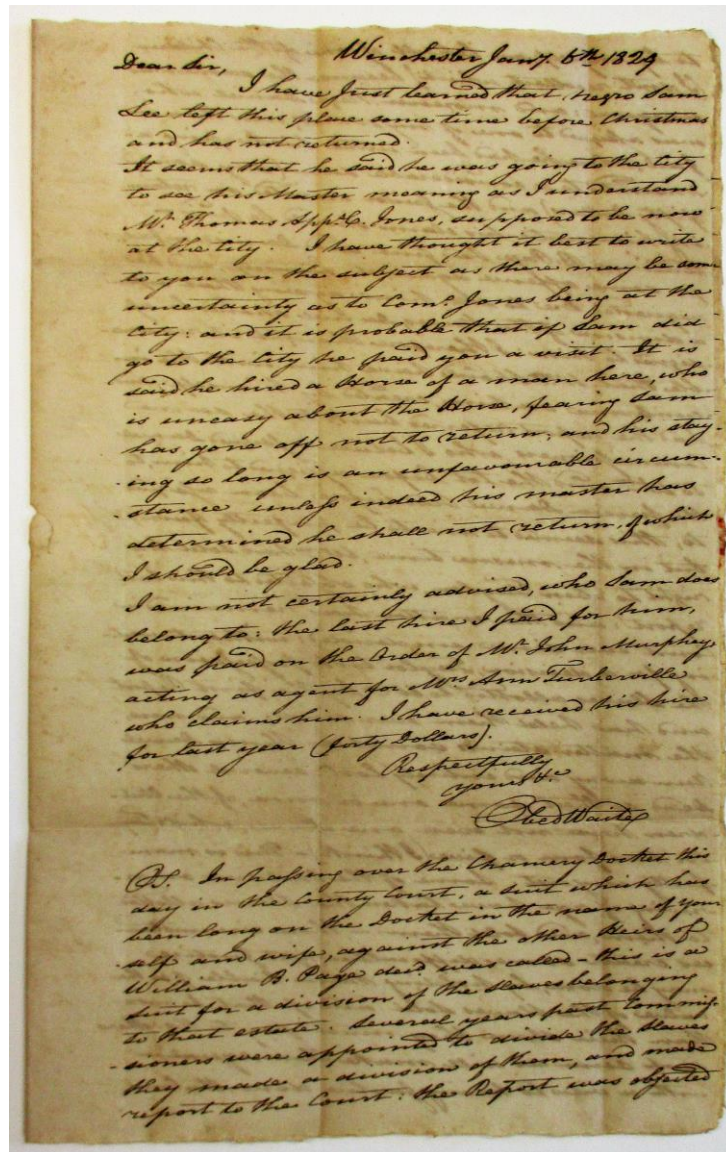 Winchester Jany. 6th 1829
Dear Sir,
I have Just learned that, negro Sam
Lee left this place some time before Christmas
and has not returned.
It seems that he said he was going to the City
to see his Master meaning as I understand
Mr. Thomas App. C. Jones, supposed to be now
at the City. I have thought it best to write
to you on the subject as there may be some
uncertainty as to Come. Jones being at the
City: and it is probable that if Sam did
go to the City he paid you a visit. It is
said he hired a Horse of a man here, who
is uneasy about the Horse, fearing Sam
has gone off not to return, and his stay-
-ing so long is an unfavourable circum-
-stance unless indeed his master has
determined he shall not return, of which
I should be glad.
I am not certainly advised, who Sam does
belong to: the last hire I paid for him,
was paid on the Order of Mr. John Murphey
acting as agent for Mrs Ann Turberville
who claims him. I have received his hire
for last year (forty Dollars).
Respectfully
yours &c
Obed Waite
PS. In passing over the Chancery Docket this
day in the County Court, a suit which has
been long on the Docket in the name of your
-self and wife, against the other Heirs of
William B. Page decd. was called - this is a
suit for a division of the slaves belonging
to that estate. Several years past Commis-
-sioners were appointed to divide the slaves
they made a division of them, and made
report to the Court: the Report was objected